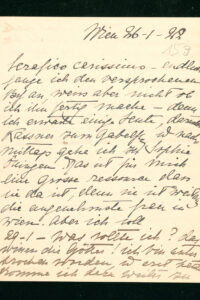 Wien 26-1-22
159
Serafico carissimo – endlich
fange ich den versprochenen
an, weiss aber nicht ob
ich ihn fertig mache – denn
ich erwarte einige Leute, darunter
Kassner zum Gabelfr. u nach-
mittags gehe ich zu Sophie
Das ist für mich
eine grosse ressource dass
sie da ist, denn sie ist weitaus
die angenehmste frau in
Wien. Aber ich soll
– Was sollte ich? das
wissen die Götter! ich bin unter-
brochen worden u erst jetzt
komme ich dazu weiter zu